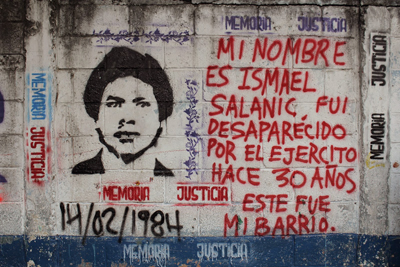 MEMORIA JUSTICIA
MI NOMBRE
ES ISMAEL
SALANIC, FUI
DESAPARÉCIDO
POR EL EJERCITO
HACE 30 AÑOS
ESTE FUE
MI BARRIO.
MEMORIA JUSTICIA
14/02/1984
MEMORIA JUSTICIA
MEMORIA
JUSTICIA
JUSTICIA
MEMORIA